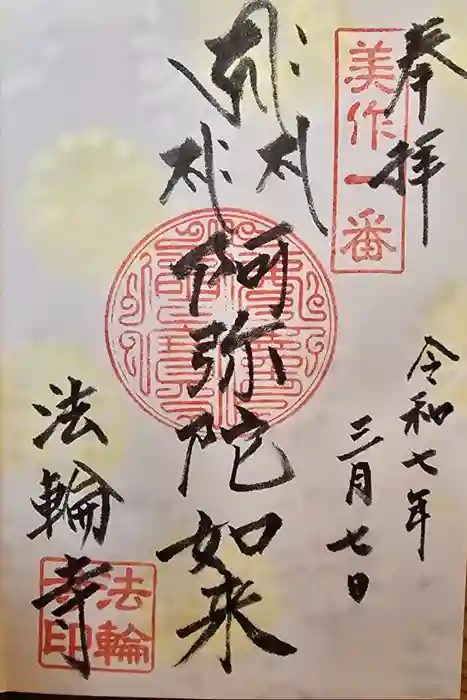 奉拝
美作一番
令和七年
三月七日
阿弥陀如来
法輪寺
法輪
寺印